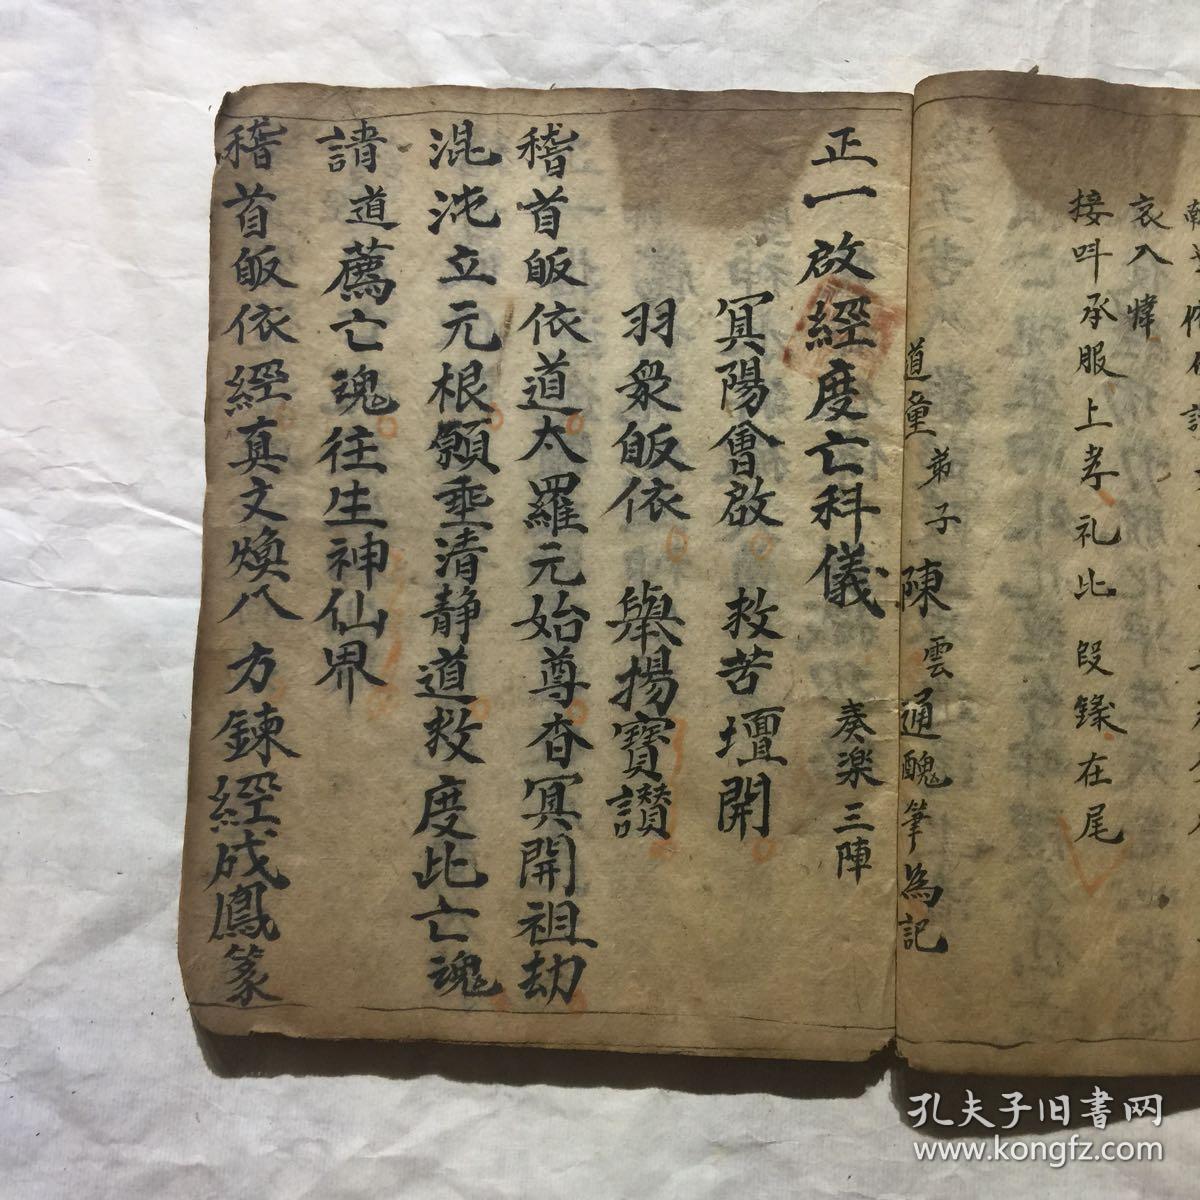 哀入幃
接呌承服上孝礼比段錄在尾
道童弟子陳雲通醜筆為記
正一啟經度亡科儀 奏楽三陣
冥陽會啟 救苦壇開
羽衆皈依 舉揚寳讃
稽首皈依道太羅元始尊杳冥開祖劫
混沌立元根願垂清静道救度比亡魂
請道薦亡魂往生神仙界
稽首皈依經真文煥八方錬經成鳳篆
孔夫子旧書网
www.kongfz.com